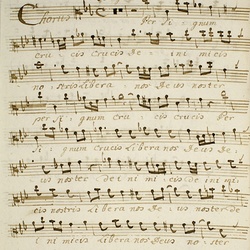 Chorus Per Si gnum
cru cis Crucis de i ni mi cis
no stris Libera nos Deus noster
per Si gnum cru cis crucis Per
Si gnum Crucis Libera nos De us de
us noster de i ni mi cis de ini mi
cis nostris Libera nos De us noster de
i ni micis Libera nos Deus no ster